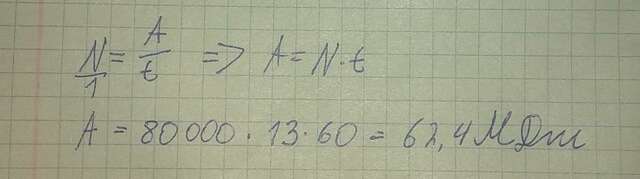 N/1 = A/t => A = N·t
A = 80000 · 13 · 60 = 62,4 МДж